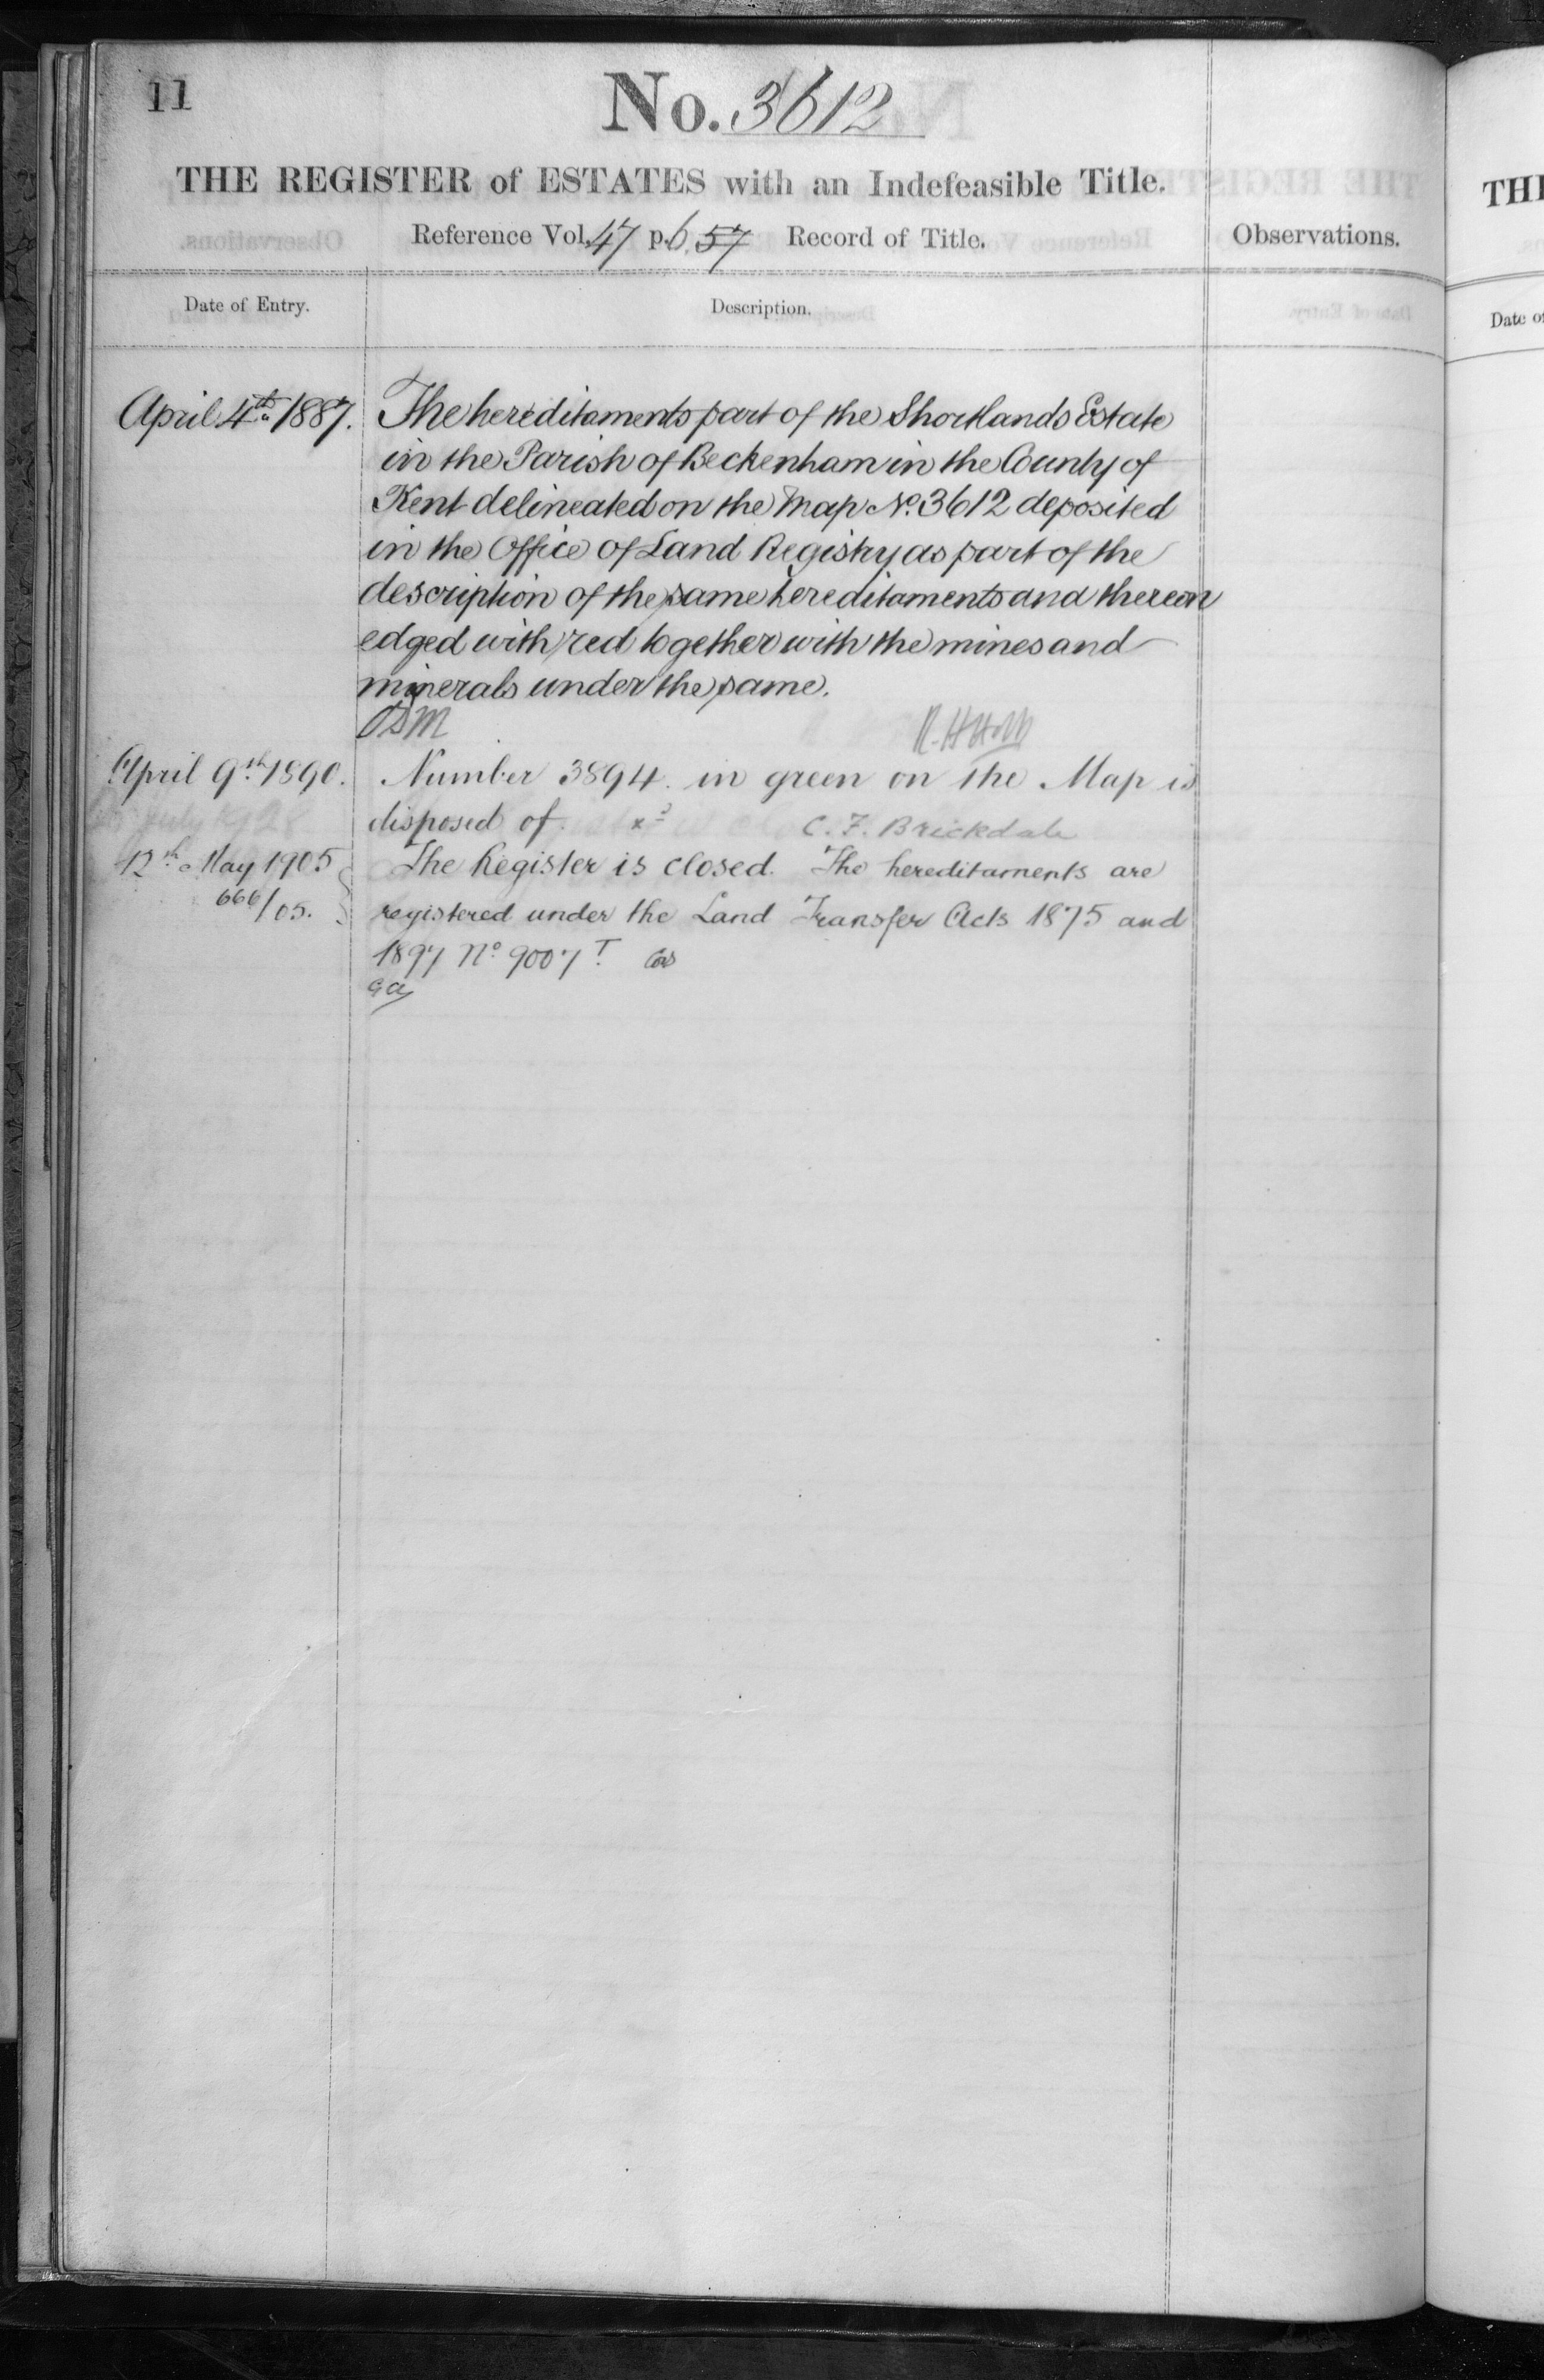 11
No. 3612
THE REGISTER of ESTATES with an Indefeasible Title.
Reference Vol. 47 p. 6 57 Record of Title.
Observations.
Date of Entry.
Description.
April 4th 1887.
The hereditaments part of the Shortlands Estate
in the Parish of Beckenham in the County of
Kent delineated on the Map No. 3612 deposited
in the Office of Land Registry as part of the
description of the same hereditaments and thereon
edged with red together with the mines and
minerals under the same.
April 9th 1890.
Number 3894 in green on the Map is
disposed of. C. F. Brickdale
12th May 1905
666/05.
The Register is closed. The hereditaments are
registered under the Land Transfer Acts 1875 and
1897 No 9007 T.
THE
Date of